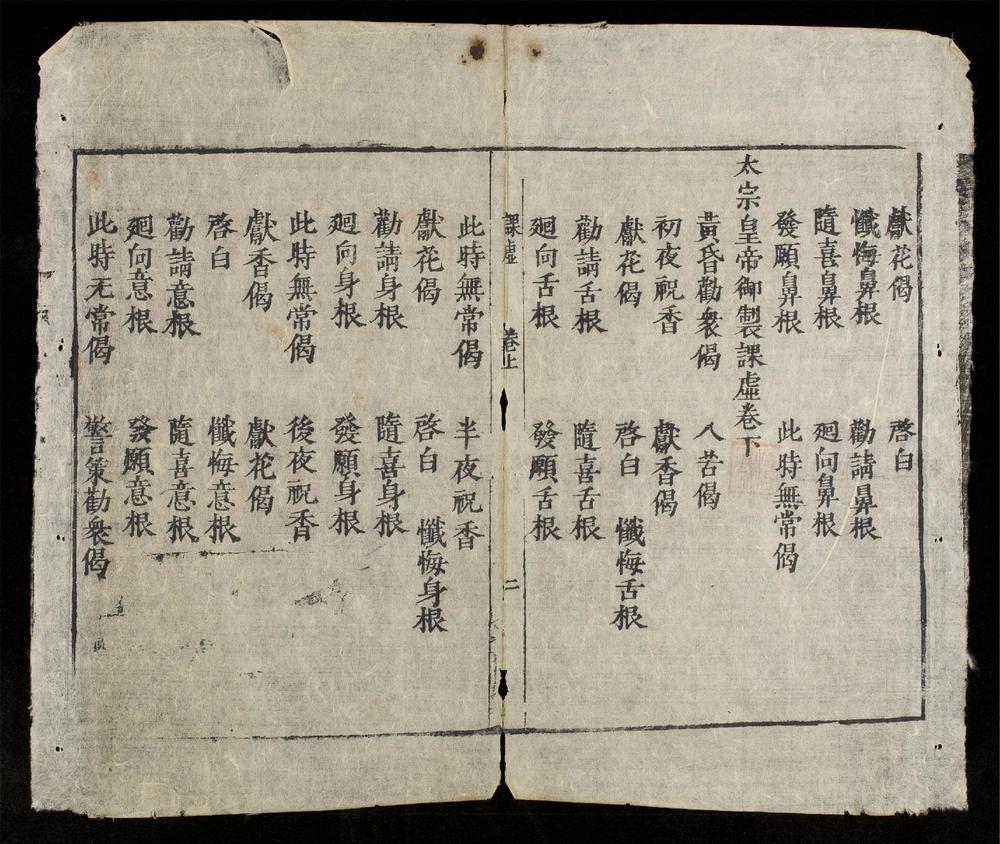 獻花偈　啓白
懺悔鼻根　勸請鼻根
隨喜鼻根　廻向鼻根
發願鼻根　此時無常偈
太宗皇帝御製課虛卷下
黃昏勸衆偈　八苦偈
初夜祝香　獻香偈
獻花偈　啓白　懺悔舌根
勸請舌根　隨喜舌根
廻向舌根　發願舌根
課虛　卷上　二
此時無常偈　半夜祝香
獻花偈　啓白　懺悔身根
勸請身根　隨喜身根
廻向身根　發願身根
此時無常偈　後夜祝香
獻香偈　獻花偈
啓白　懺悔意根
勸請意根　隨喜意根
廻向意根　發願意根
此時无常偈　警策勸衆偈